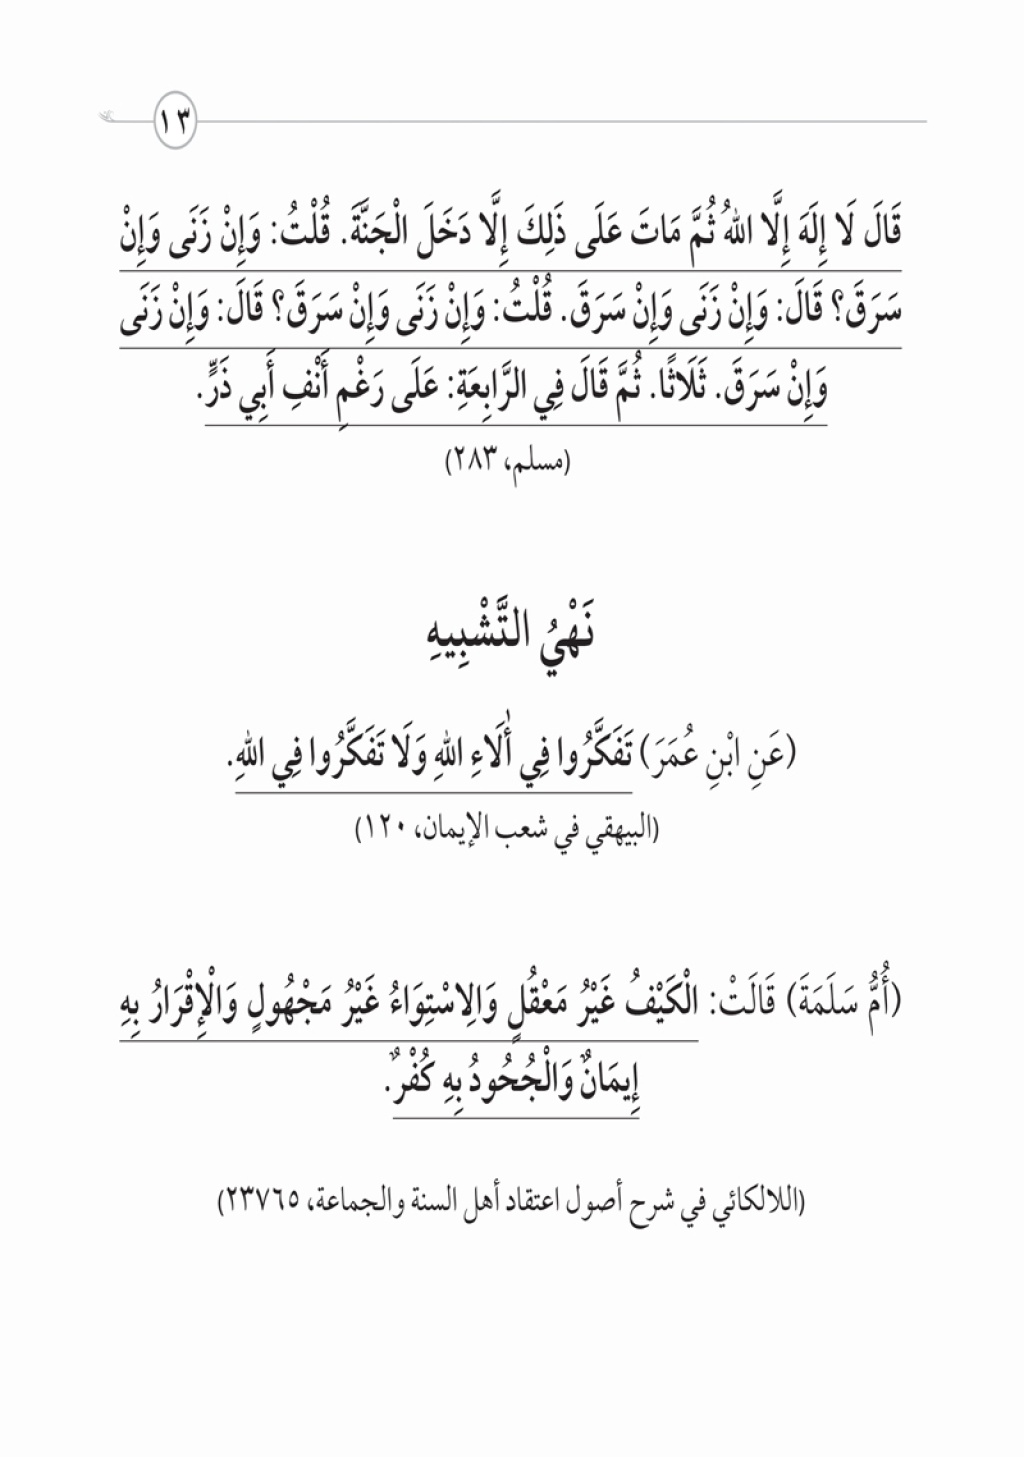 ١٣
قَالَ لَا إِلَهَ إِلَّا اللهُ ثُمَّ مَاتَ عَلَى ذَلِكَ إِلَّا دَخَلَ الْجَنَّةَ. قُلْتُ: وَإِنْ زَنَى وَإِنْ
سَرَقَ؟ قَالَ: وَإِنْ زَنَى وَإِنْ سَرَقَ. قُلْتُ: وَإِنْ زَنَى وَإِنْ سَرَقَ؟ قَالَ: وَإِنْ زَنَى
وَإِنْ سَرَقَ. ثَلَاثًا. ثُمَّ قَالَ فِي الرَّابِعَةِ: عَلَى رَغْمِ أَنْفِ أَبِي ذَرٍّ.
(مسلم، ٢٨٣)
نَهْيُ التَّشْبِيهِ
(عَنِ ابْنِ عُمَرَ) تَفَكَّرُوا فِي أَٰلَاءِ اللهِ وَلَا تَفَكَّرُوا فِي اللهِ.
(البيهقي في شعب الإيمان، ١٢٠)
(أُمُّ سَلَمَةَ) قَالَتْ: الْكَيْفُ غَيْرُ مَعْقُلٍ وَالِاسْتِوَاءُ غَيْرُ مَجْهُولٍ وَالْإِقْرَارُ بِهِ
إِيمَانٌ وَالْجُحُودُ بِهِ كُفْرٌ.
(اللالكائي في شرح أصول اعتقاد أهل السنة والجماعة، ٢٣٧٦٥)